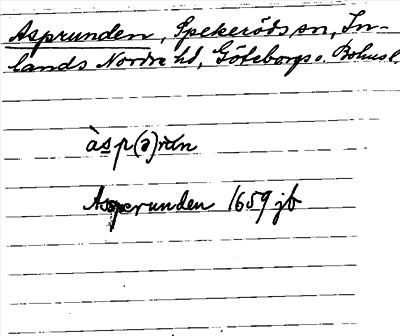 Asprunden, Spekeröds sn, In-
lands Nordre hd, Göteborgs o. Bohus l.
àsp(ə)rə́n
Asperunden 1659 jb